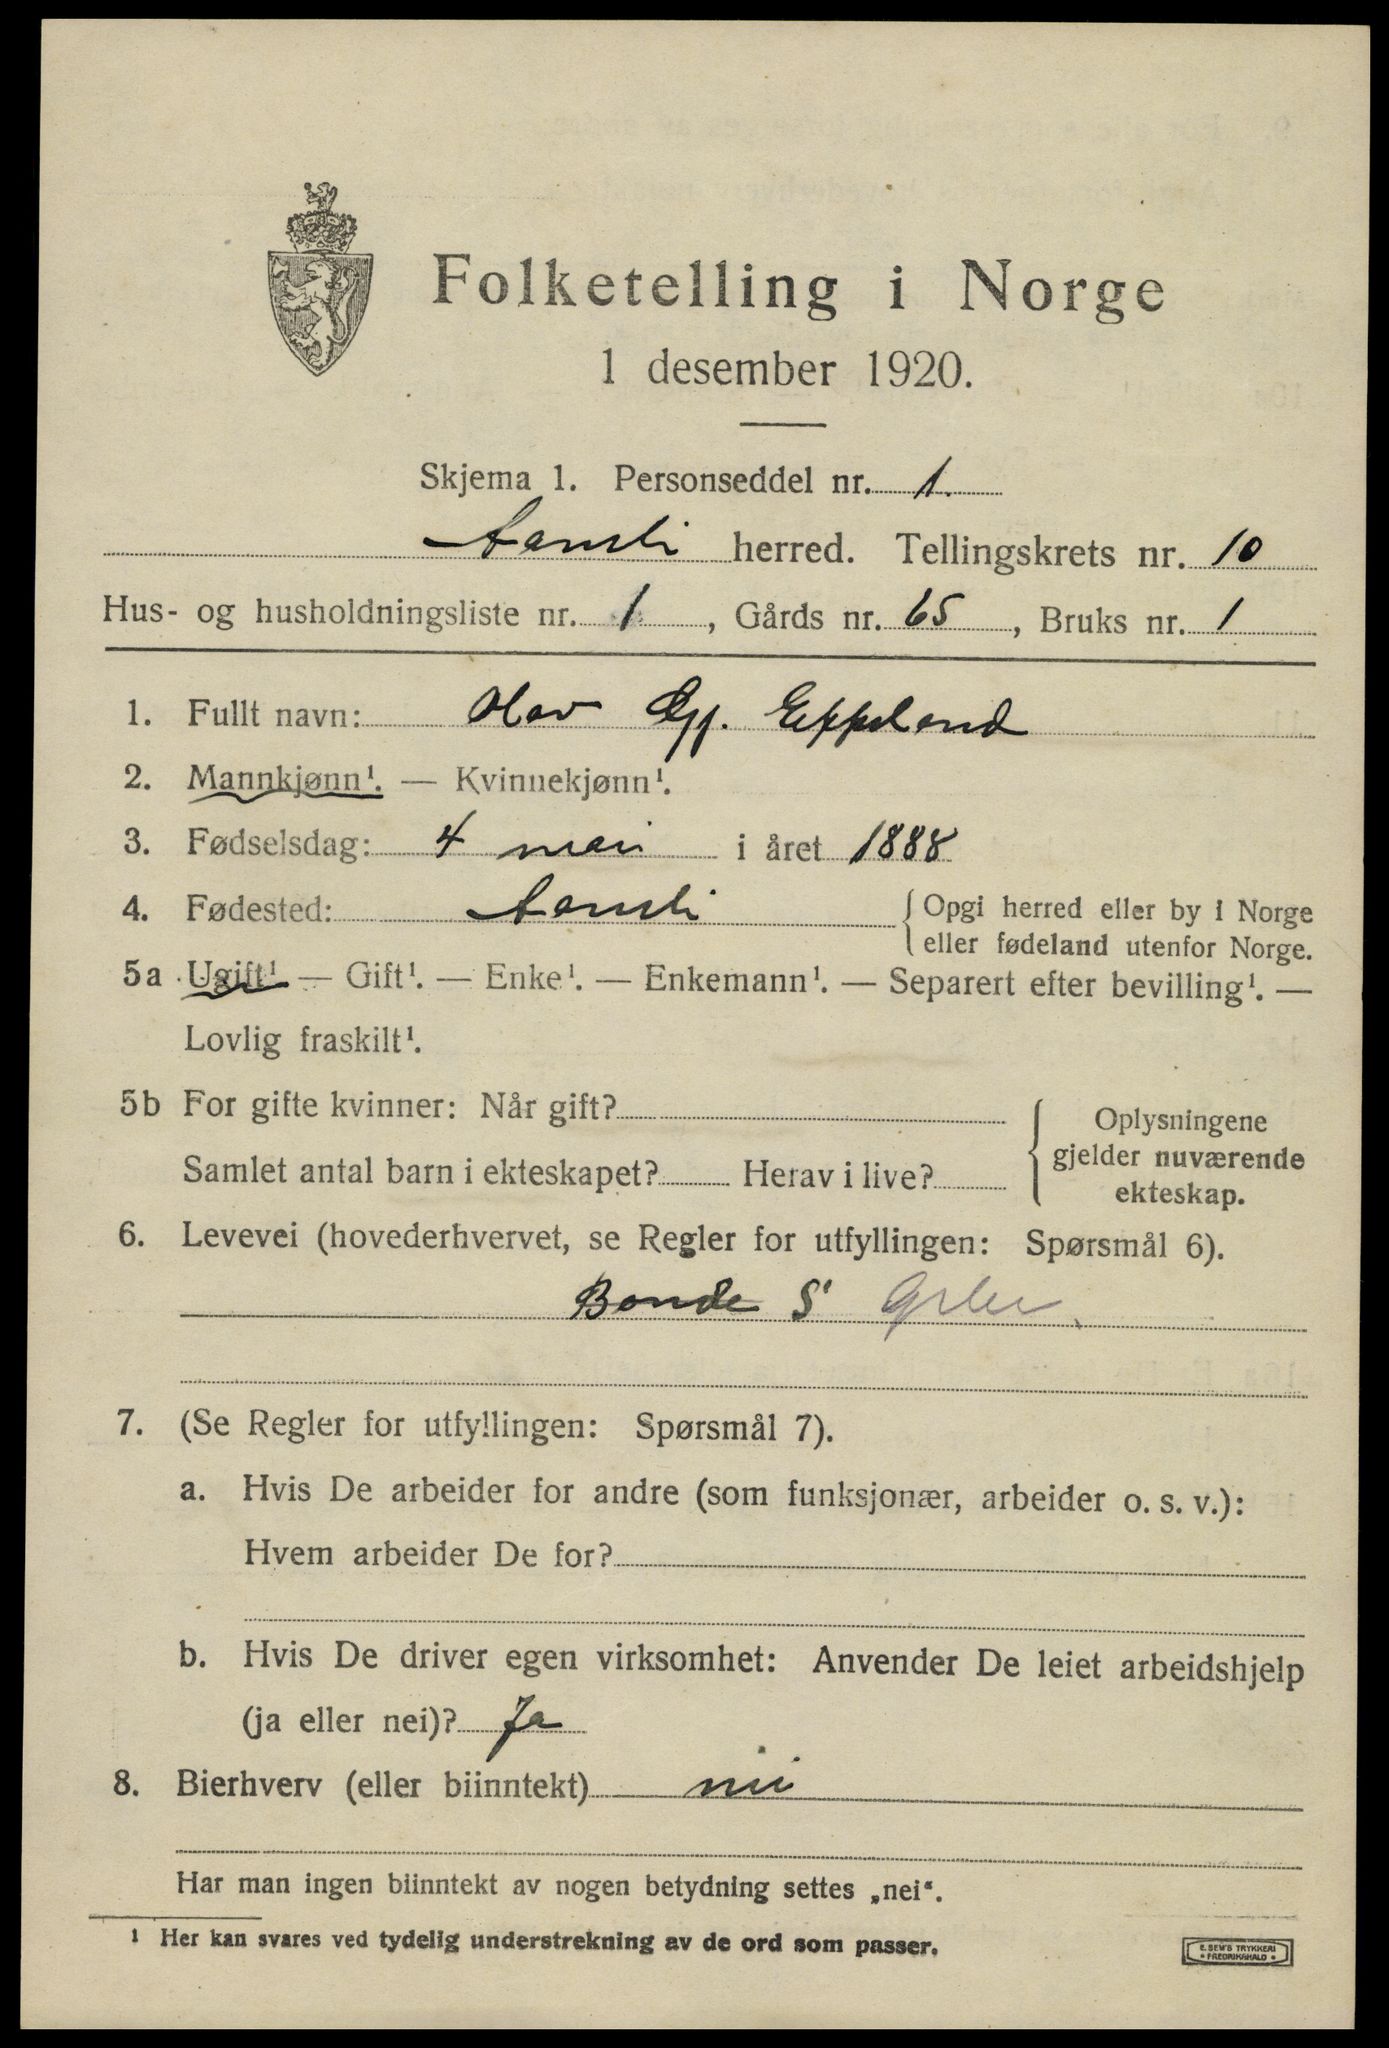 Folketelling i Norge
1 desember 1920.
Skjema 1. Personseddel nr. 1.
Aamli herred. Tellingskrets nr. 10
Hus- og husholdningsliste nr. 1, Gårds nr. 65, Bruks nr. 1
1. Fullt navn: Olav Eppeland
2. Mannkjønn¹. — Kvinnekjønn¹.
3. Fødselsdag: 4 mai i året 1888
4. Fødested: Aamli { Opgi herred eller by i Norge
eller fødeland utenfor Norge.
5a Ugift¹ — Gift¹. — Enke¹. — Enkemann¹. — Separert efter bevilling¹. —
Lovlig fraskilt¹.
5b For gifte kvinner: Når gift?
Samlet antal barn i ekteskapet? Herav i live?
Oplysningene
gjelder nuværende
ekteskap.
6. Levevei (hovederhvervet, se Regler for utfyllingen: Spørsmål 6).
Bonde S
7. (Se Regler for utfyllingen: Spørsmål 7).
a. Hvis De arbeider for andre (som funksjonær, arbeider o. s. v.):
Hvem arbeider De for?
b. Hvis De driver egen virksomhet: Anvender De leiet arbeidshjelp
(ja eller nei)? Ja
8. Bierhverv (eller biinntekt) nei
Har man ingen biinntekt av nogen betydning settes „nei“.
¹ Her kan svares ved tydelig understrekning av de ord som passer.
E. SEM'S TRYKKERI
* FREDRIKSHALD *